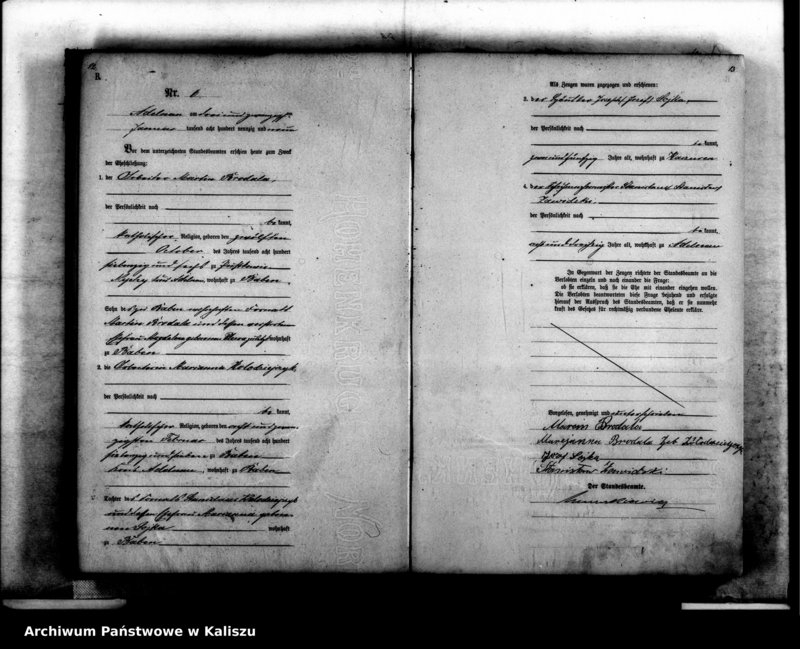 12
B.
Nr. 6
Adelnau am dreiundzwanzigsten
Januar tausend acht hundert neunzig und neun
Vor dem unterzeichneten Standesbeamten erschien heute zum Zweck
der Eheschließung:
1. der Arbeiter Martin Brodala,
der Persönlichkeit nach
bekannt,
katholischer Religion, geboren den zwölften
October des Jahres tausend acht hundert
siebenzig und zu
Kreis Adelnau, wohnhaft zu Baben
Sohn des zu Baben
Martin Brodala und dessen
Ehefrau Magdalena geborenen wohnhaft
zu Baben
2. die Arbeiterin Marianna Kolodziejczyk,
der Persönlichkeit nach
bekannt,
katholischer Religion, geboren den acht und zwan-
zigsten Februar des Jahres tausend acht hundert
siebenzig und sieben zu Baben
Kreis Adelnau, wohnhaft zu Baben
Tochter des Kolodziejczyk
und dessen Ehefrau Marianna gebore-
nen Sojka wohnhaft
zu Baben
13
Als Zeugen waren zugezogen und erschienen:
3. der Häusler Joseph Sojka,
der Persönlichkeit nach
bekannt,
zweiundfünfzig Jahre alt, wohnhaft zu
4. der Stanislaus
Zawidzki
der Persönlichkeit nach
bekannt,
acht und dreißig Jahre alt, wohnhaft zu Adelnau
In Gegenwart der Zeugen richtete der Standesbeamte an die
Verlobten einzeln und nach einander die Frage:
ob sie erklären, daß sie die Ehe mit einander eingehen wollen.
Die Verlobten beantworteten diese Frage bejahend und erfolgte
hierauf der Ausspruch des Standesbeamten, daß er sie nunmehr
kraft des Gesetzes für rechtmäßig verbundene Eheleute erkläre.
Vorgelesen, genehmigt und unterschrieben
Marcin Brodala
Maryjanna Brodala geb
Józef Sojka
Stanisław Zawidzki
Der Standesbeamte.
Archiwum Państwowe w Kaliszu